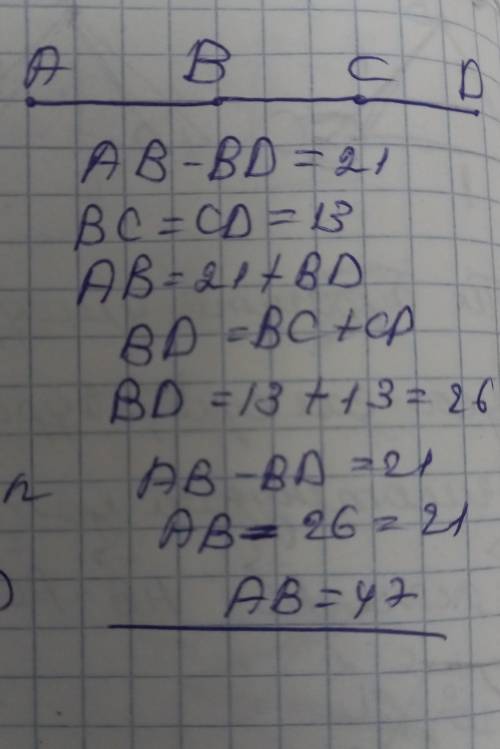 A B C D
AB - BD = 21
BC = CD = 13
AB = 21 + BD
BD = BC + CD
BD = 13 + 13 = 26
AB - BD = 21
AB - 26 = 21
AB = 47